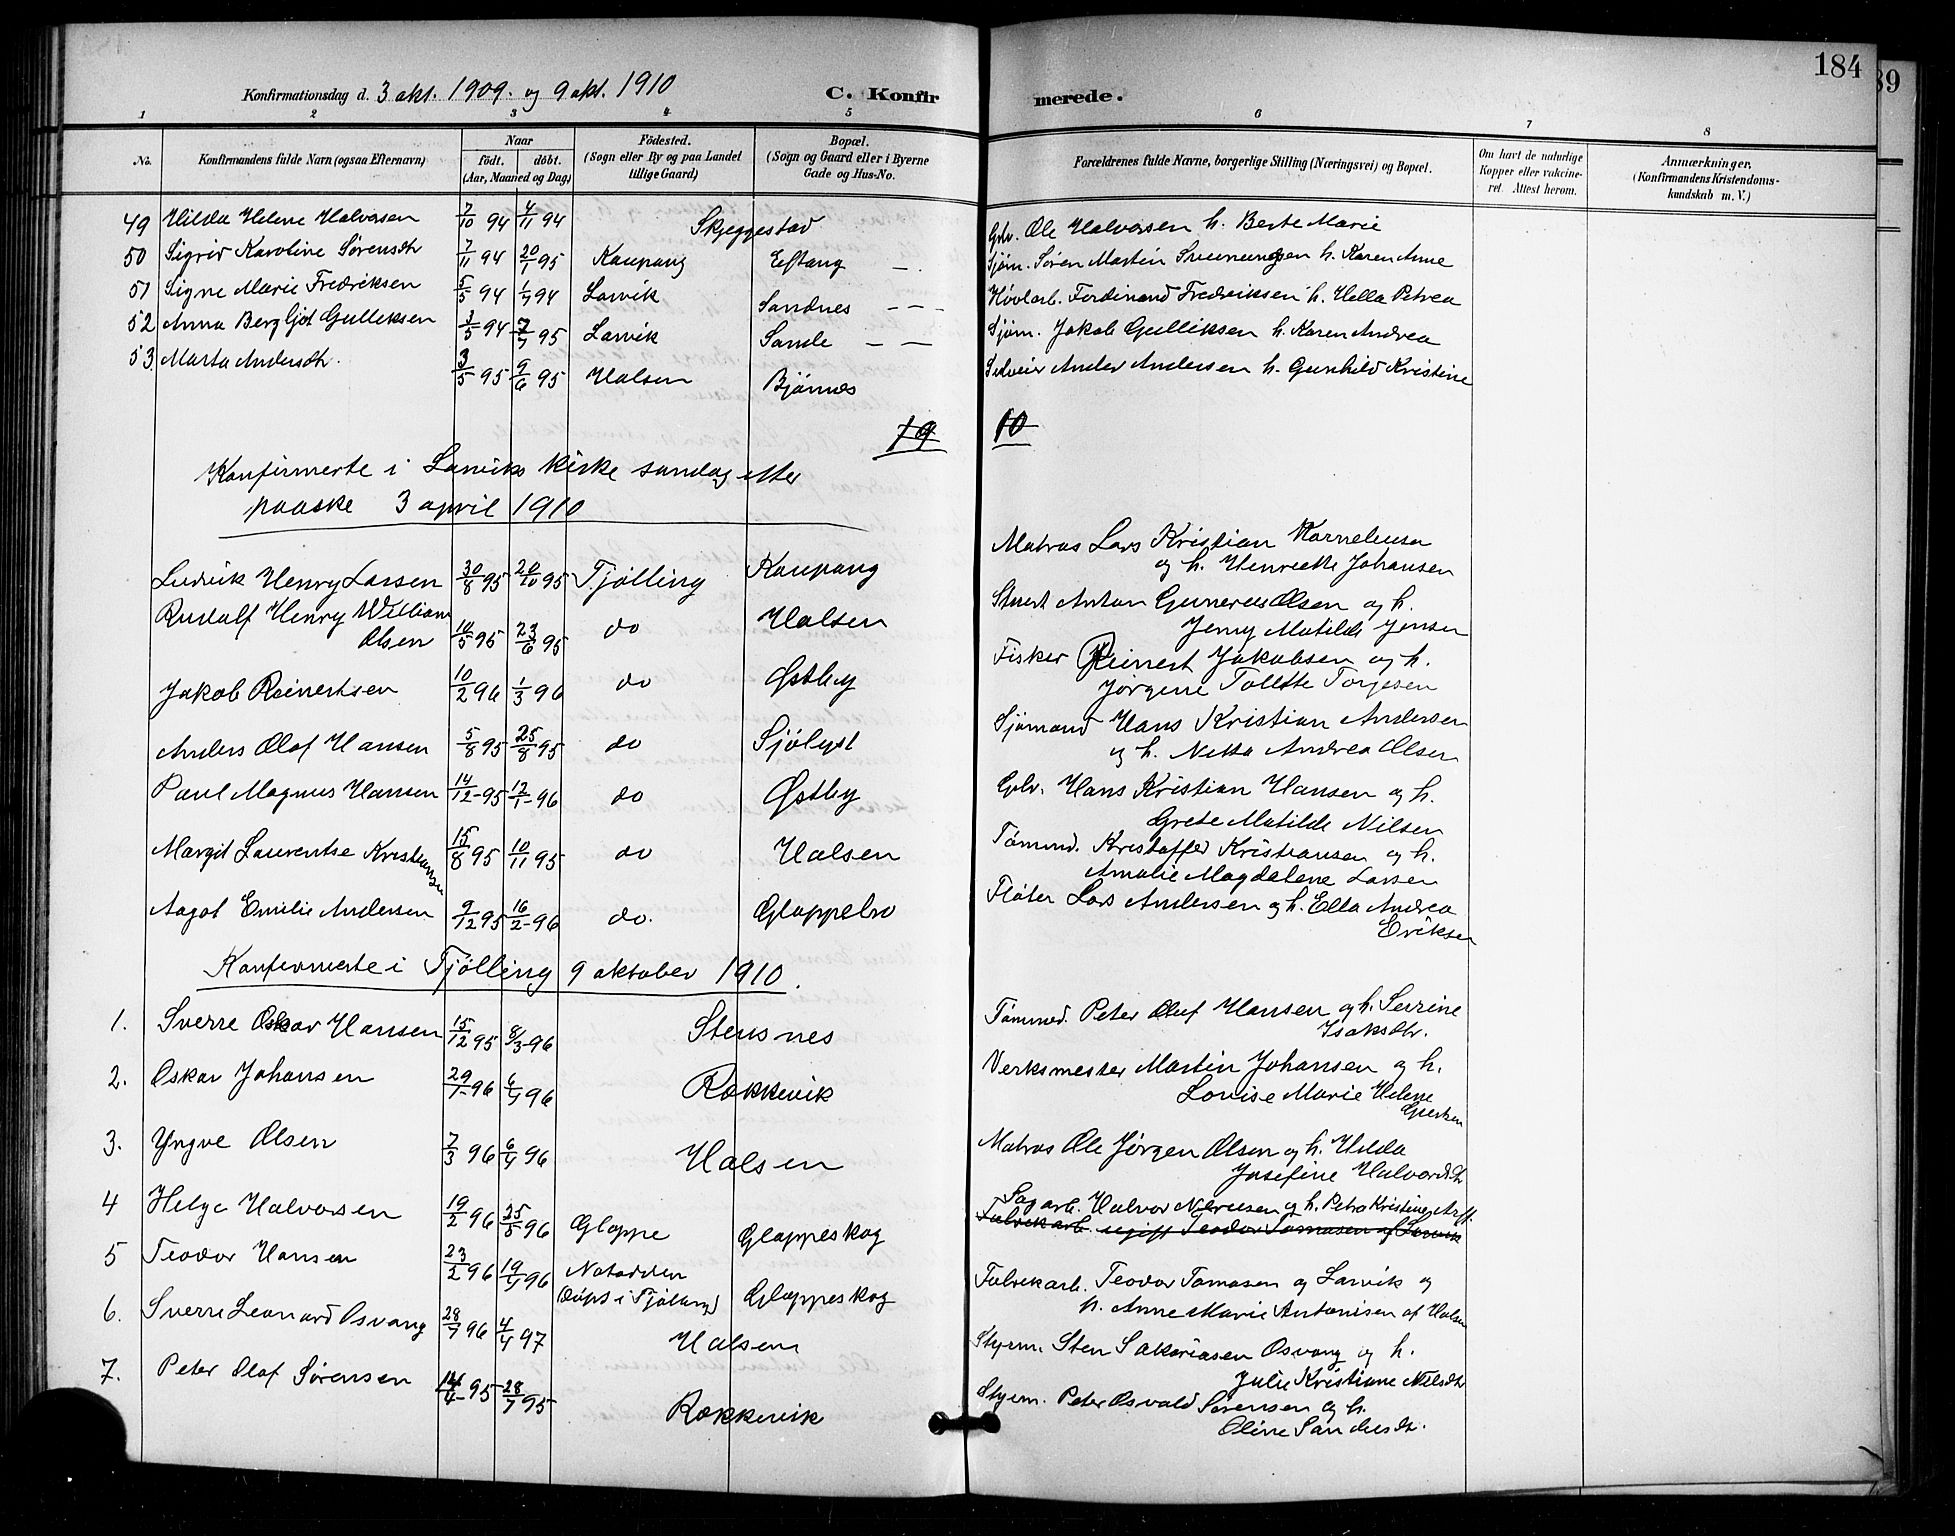 184
89
Konfirmationsdag d. 3 okt. 1909. og 9 okt. 1910
C. Konfirmerede.
1 2 3 4 5 6 7 8
No.
Konfirmandens fulde Navn (ogsaa Efternavn)
Naar
født. døbt.
(Aar, Maaned og Dag)
Fødested.
(Sogn eller By og paa Landet
tillige Gaard)
Bopæl.
(Sogn og Gaard eller i Byerne
Gade og Hus-No.
Forældrenes fulde Navne, borgerlige Stilling (Næringsvei) og Bopæl.
Om havt de naturlige
Kopper eller vaccine-
ret. Attest herom.
Anmærkninger.
(Konfirmandens Kristendoms-
kundskab m. V.)
49 Hilda Helene Halvorsen 7/10 94 4/11 94 Skjeggestad Gbr. Ole Halvorsen h. Berte Marie
50 Sigrid Karoline Sørensdtr 7/11 94 20/1 95 Kaupang Eftang — Sjøm. Søren Martin h. Karen Anne
51 Signe Marie Fredriksen 5/5 94 1/7 94 Larvik Sandnes - - - Høvlarb. Ferdinand Fredriksen h. Hella Petrea
52 Anna Bergljot Gulliksen 3/5 94 7/7 95 Larvik Sande — — Sjøm. Jakob Gulliksen h. Karen Andrea
53 Marta Andersdtr. 3/5 95 9/6 95 Halsen Bjønnes Anders Andersen h. Gunhild Kristine
19 10
Konfirmerte i Larviks kirke søndag efter
paaske 3 april 1910
Ludvik Henry Larsen 30/8 95 20/10 95 Tjølling Kaupang Matros Lars Kristian Korneliusen
og h. Henriette Johansen
Rudolf Henry William
Olsen 10/5 95 23/6 95 do Halsen Stuert Anton Gunerius Olsen og h.
Jenny Matilde Jensen
Jakob Reinertsen 10/2 96 1/3 96 do Østby Fisker Reinert Jakobsen og h.
Jørgine Tolette Torjesen
Anders Olaf Hansen 5/8 95 25/8 95 do Sjølyst Sjømand Hans Kristian Andersen
og h. Netta Andrea Olsen
Paul Magnus Hansen 14/12-95 12/1-96 do Østby Gbr. Hans Kristian Hansen og h.
Grete Matilde Nilsen
Margit Laurentse Kristiansen 15/8 95 10/11 95 do Halsen Tømmd. Kristoffer Kristiansen og h.
Amalie Magdalene Larsen
Aagot Emilie Andersen 9/12 95 16/2-96 do. Gloppebro Fløter Lars Andersen og h. Ella Andrea
Eriksen
Konfirmerte i Tjølling 9 oktober 1910.
1. Sverre Oskar Hansen 15/12 95 8/3-96 Stensnes Tømmed. Peter Oluf Hansen og h. Serine
Isaksdtr.
2. Oskar Johansen 29/1-96 6/4 96 Rækkevik Verksmester Martin Johansen og h.
Lovise Marie Helene
3. Yngve Olsen 7/3 96 6/4 96 Halsen Matros Ole Jørgen Olsen og h. Hilda
Josefine Halvordtr
4 Helge Halvorsen 19/2 96 25/5 96 Gloppe Gloppeskog Sagarb. Halvor Nilsen og h. Petra Kristine
Fabrikarb. ugift Teodor Tomasen af Larvik
5 Teodor Hansen 23/2 96 19/4 96 Notodden
(døpt i Tjølling) Gloppeskog Fabrikarb. Teodor Tomasen og Larvik og
h. Anne Marie Antonisen af Halsen
6. Sverre Leonard Osvang 28/7 96 4/4 97 Halsen Styrm. Sten Sakariasen Osvang og h.
Julie Kristiane Nilsdtr
7. Peter Olaf Sørensen 14/4-95 28/7 95 Rækkevik Styrm. Peter Osvald Sørensen og h.
Oline